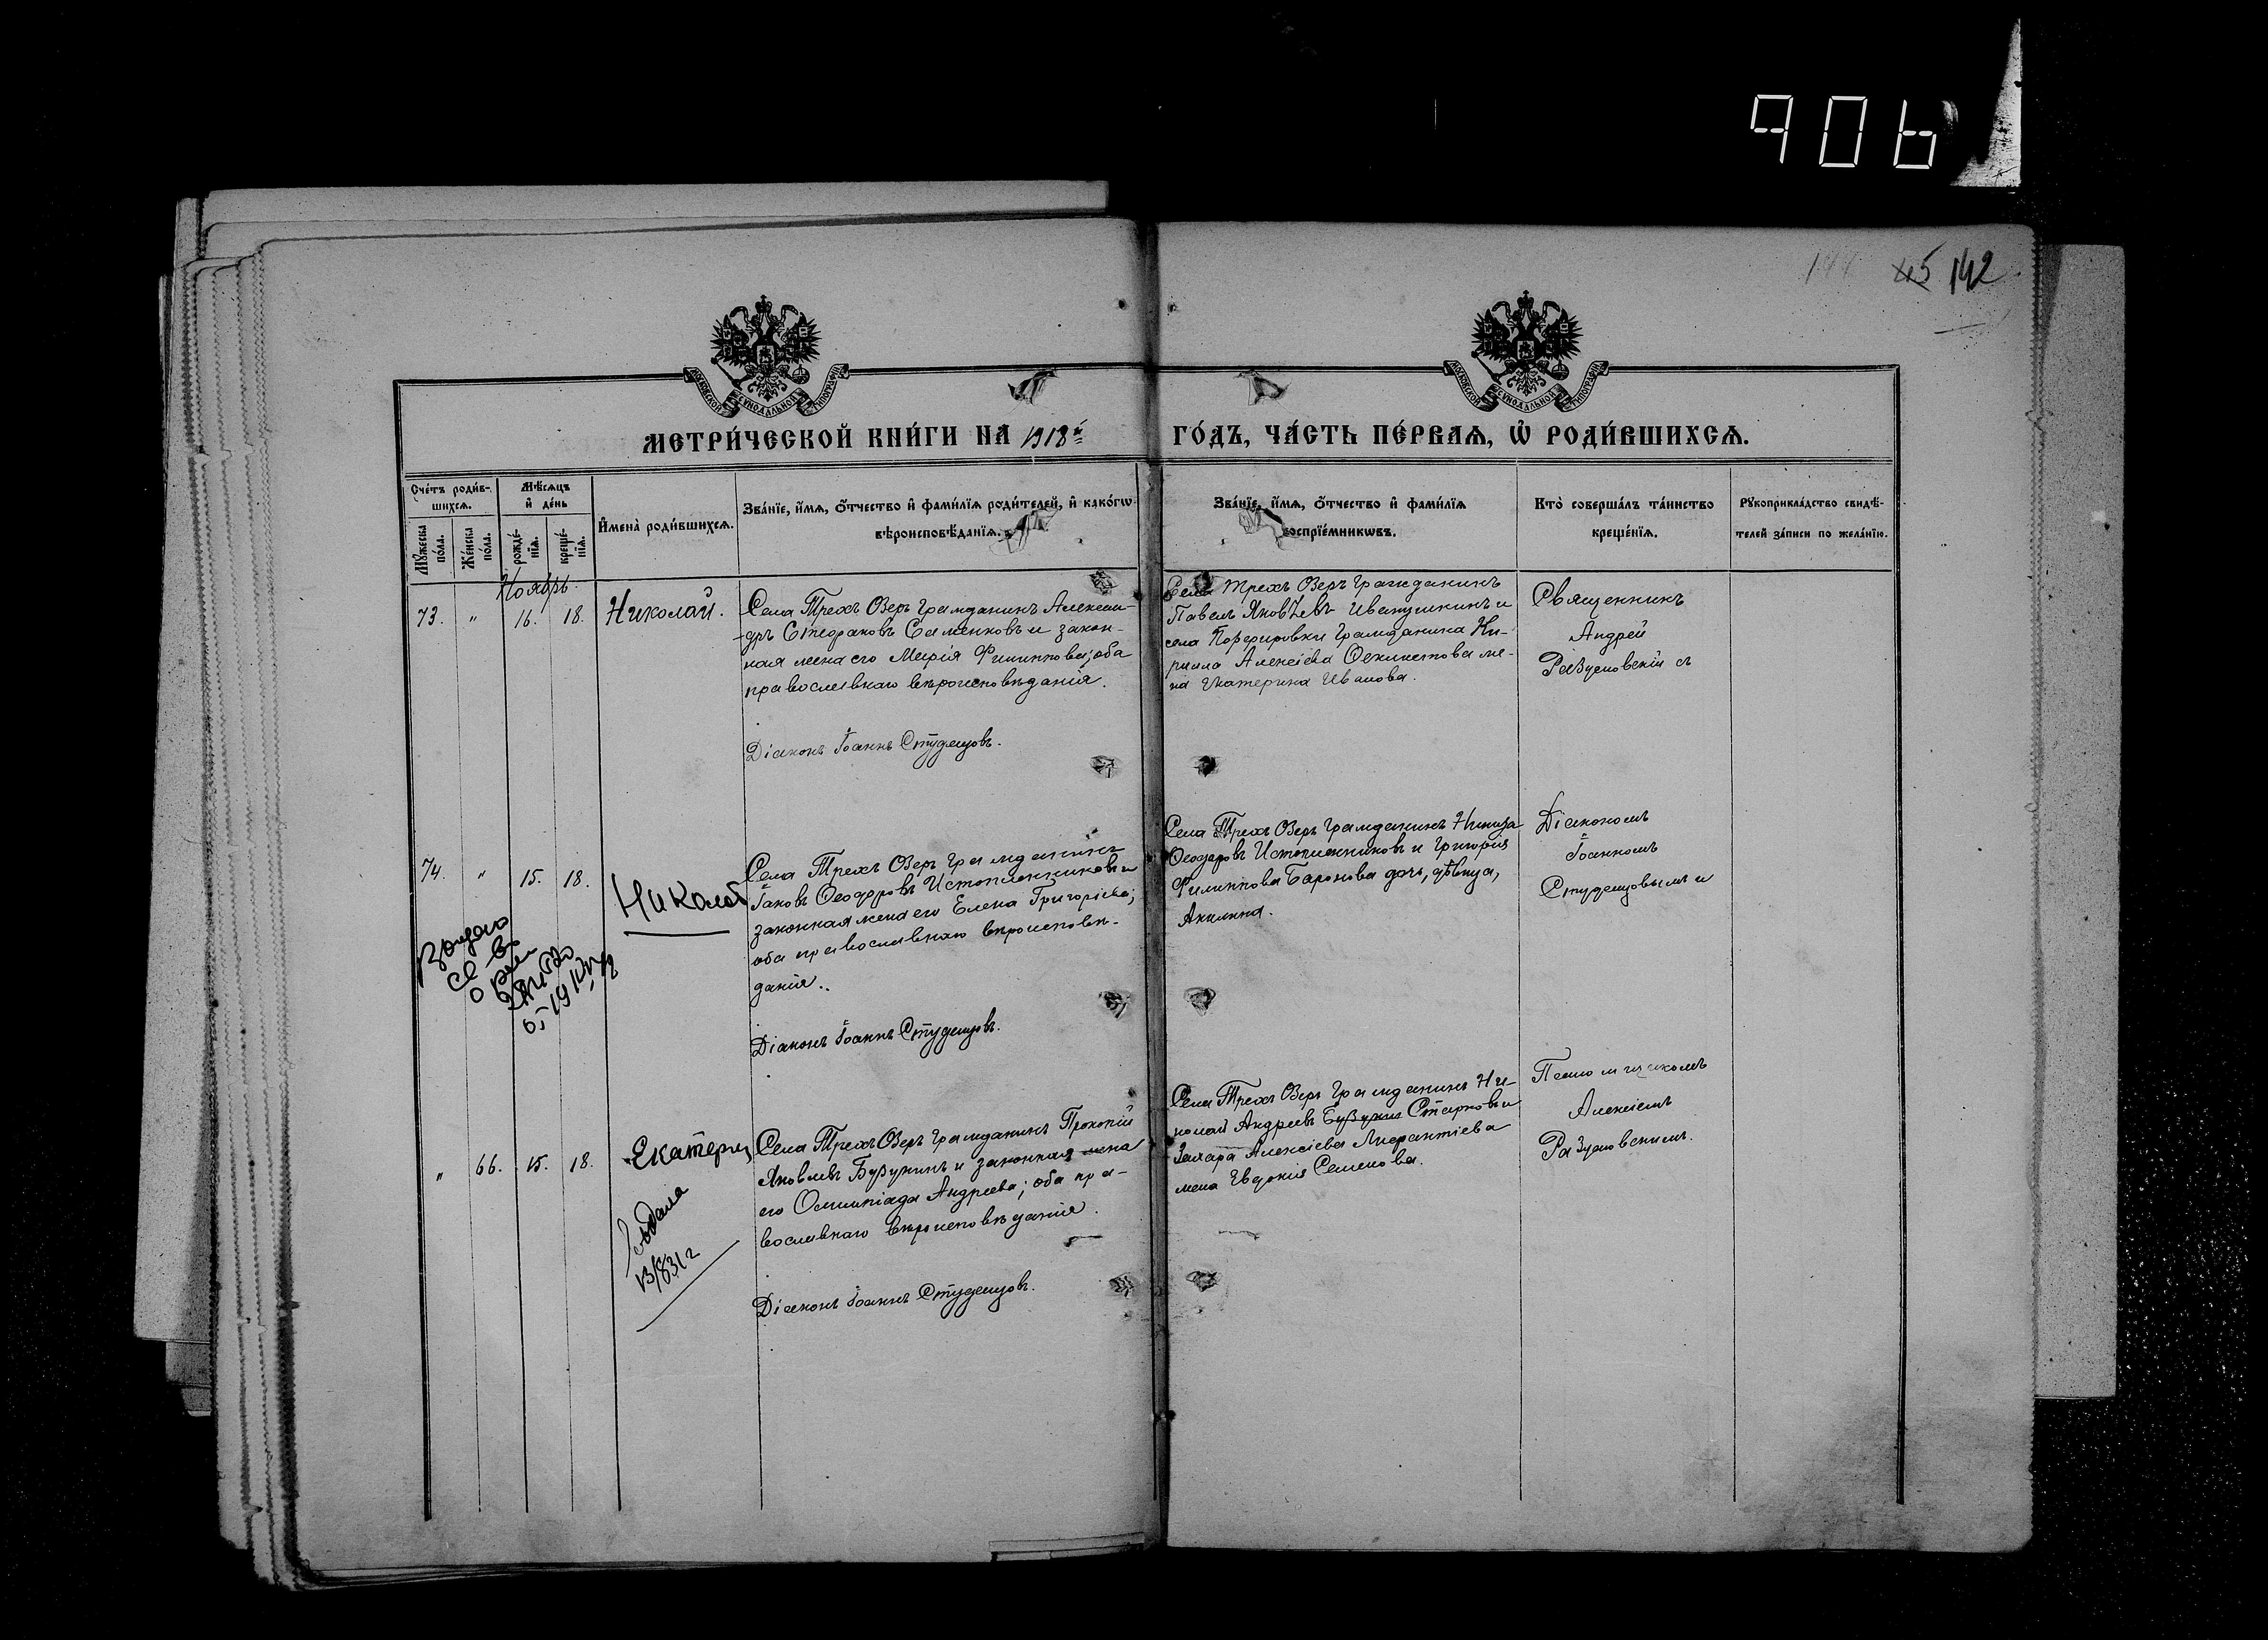 906
45 142
МОСКОВСКОЙ СѴНОДАЛЬНОЙ ТИПОГРАФІИ
МОСКОВСКОЙ СѴНОДАЛЬНОЙ ТИПОГРАФІИ
МЕТРИ́ЧЕСКОЙ КНИ́ГИ НА 1918й ГО́ДЪ, ЧА́СТЬ ПЕ́РВАѦ, Ѡ҆ РОДИ́ВШИХСѦ.
Сче́тъ роди́в-
шихсѧ.
Мꙋжеска по́ла.
Же́нска по́ла.
Мѣ́сѧцъ
и҆ де́нь
рожде́-
нїѧ.
креще́-
нїѧ.
И҆мена̀ роди́вшихсѧ.
Зва́нїе, и҆́мѧ, ѻ҆́тчество и҆ фами́лїѧ роди́телей, и҆ како́гѡ
вѣроисповѣ́данїѧ.
Зва́нїе, и҆́мѧ, ѻ҆́тчество и҆ фами́лїѧ
воспрїе́мникѡвъ.
Кто̀ соверша́лъ та́инство
креще́нїѧ.
Рꙋкоприкла́дство свидѣ́-
телей за́писи по жела́нїю.
Ноябрь.
73. " 16. 18. Николай.
Села Трехъ Озеръ гражданинъ Алексан-
-дръ Стефановъ Саменковъ и закон-
ная жена его Марія Филиппова; оба
православнаго вѣроисповѣданія.
Діаконъ Іоаннъ Студенцовъ.
Села Трехъ Озеръ гражданинъ
Павелъ Яковлевъ Иватушкинъ и
села Порфировки гражданина Ки-
рилла Алексіева Феклистова же-
на Екатерина Иванова.
Священникъ
Андрей
Разумовскій съ
74. " 15. 18. Николай
Села Трехъ Озеръ гражданинъ
Іаковъ Ѳеодоровъ Истоменниковъ и
законная жена его Елена Григоріева;
оба православнаго вѣроисповѣ-
данія.
Діаконъ Іоаннъ Студенцовъ.
Села Трехъ Озеръ гражданинъ Никита
Ѳеодоровъ Истоменниковъ и Григорія
Филиппова Баронова дочь, дѣвица,
Акилина.
Діакономъ
Іоанномъ
Студенцовымъ и
" 66. 15. 18. Екатерин
13/8 31 г
Села Трехъ Озеръ гражданинъ Прокопій
Яковлевъ Бузукинъ и законная жена
его Олимпіада Андреева; оба пра-
вославнаго вѣроисповѣданія.
Діаконъ Іоаннъ Студенцовъ.
Села Трехъ Озеръ гражданинъ Ни-
колай Андреевъ Бузукин Старковъ и
Захара Алексіева Лаврентіева
жена Евдокія Семенова.
Псаломщикомъ
Алексіемъ
Разумовскимъ.